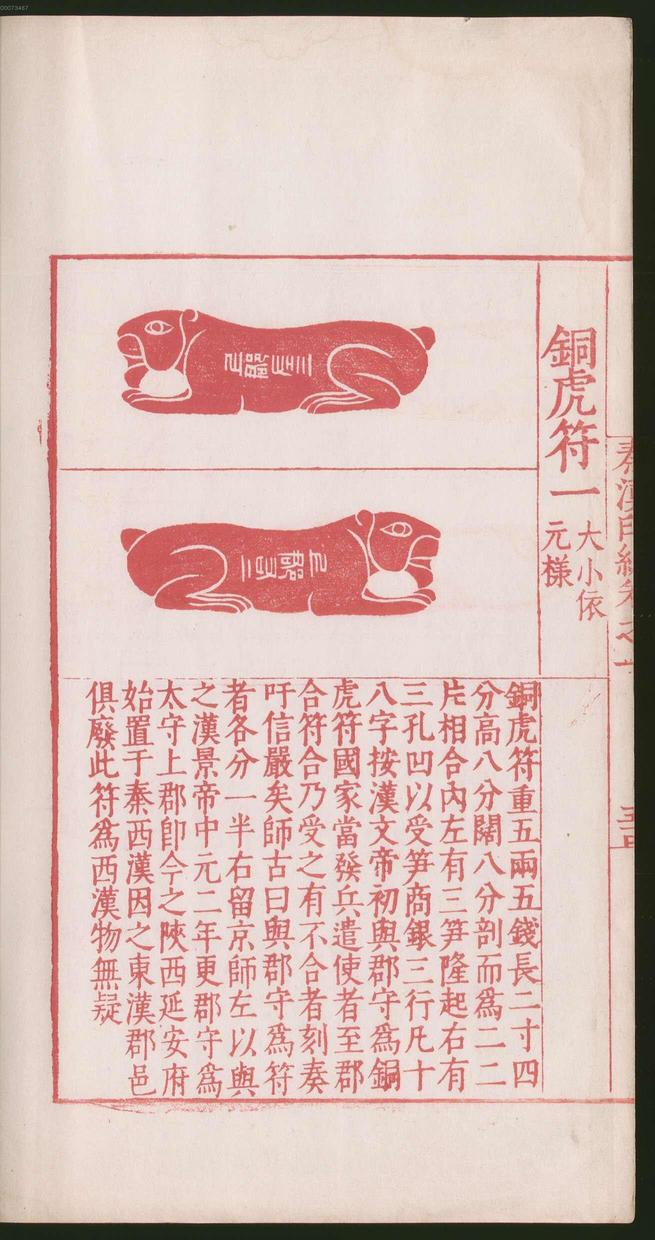 00073467
秦漢印統卷之一
五四
銅虎符一
大小依
元樣
銅虎符重五兩五錢長二寸四
分高八分闊八分剖而為二二
片相合內左有三笋隆起右有
三孔凹以受笋商銀三行凡十
八字按漢文帝初與郡守為銅
虎符國家當發兵遣使者至郡
合符合乃受之有不合者刻奏
吁信嚴矣師古曰與郡守為符
者各分一半右留京師左以與
之漢景帝中元二年更郡守為
太守上郡即今之陝西延安府
始置于秦西漢因之東漢郡邑
俱廢此符為西漢物無疑